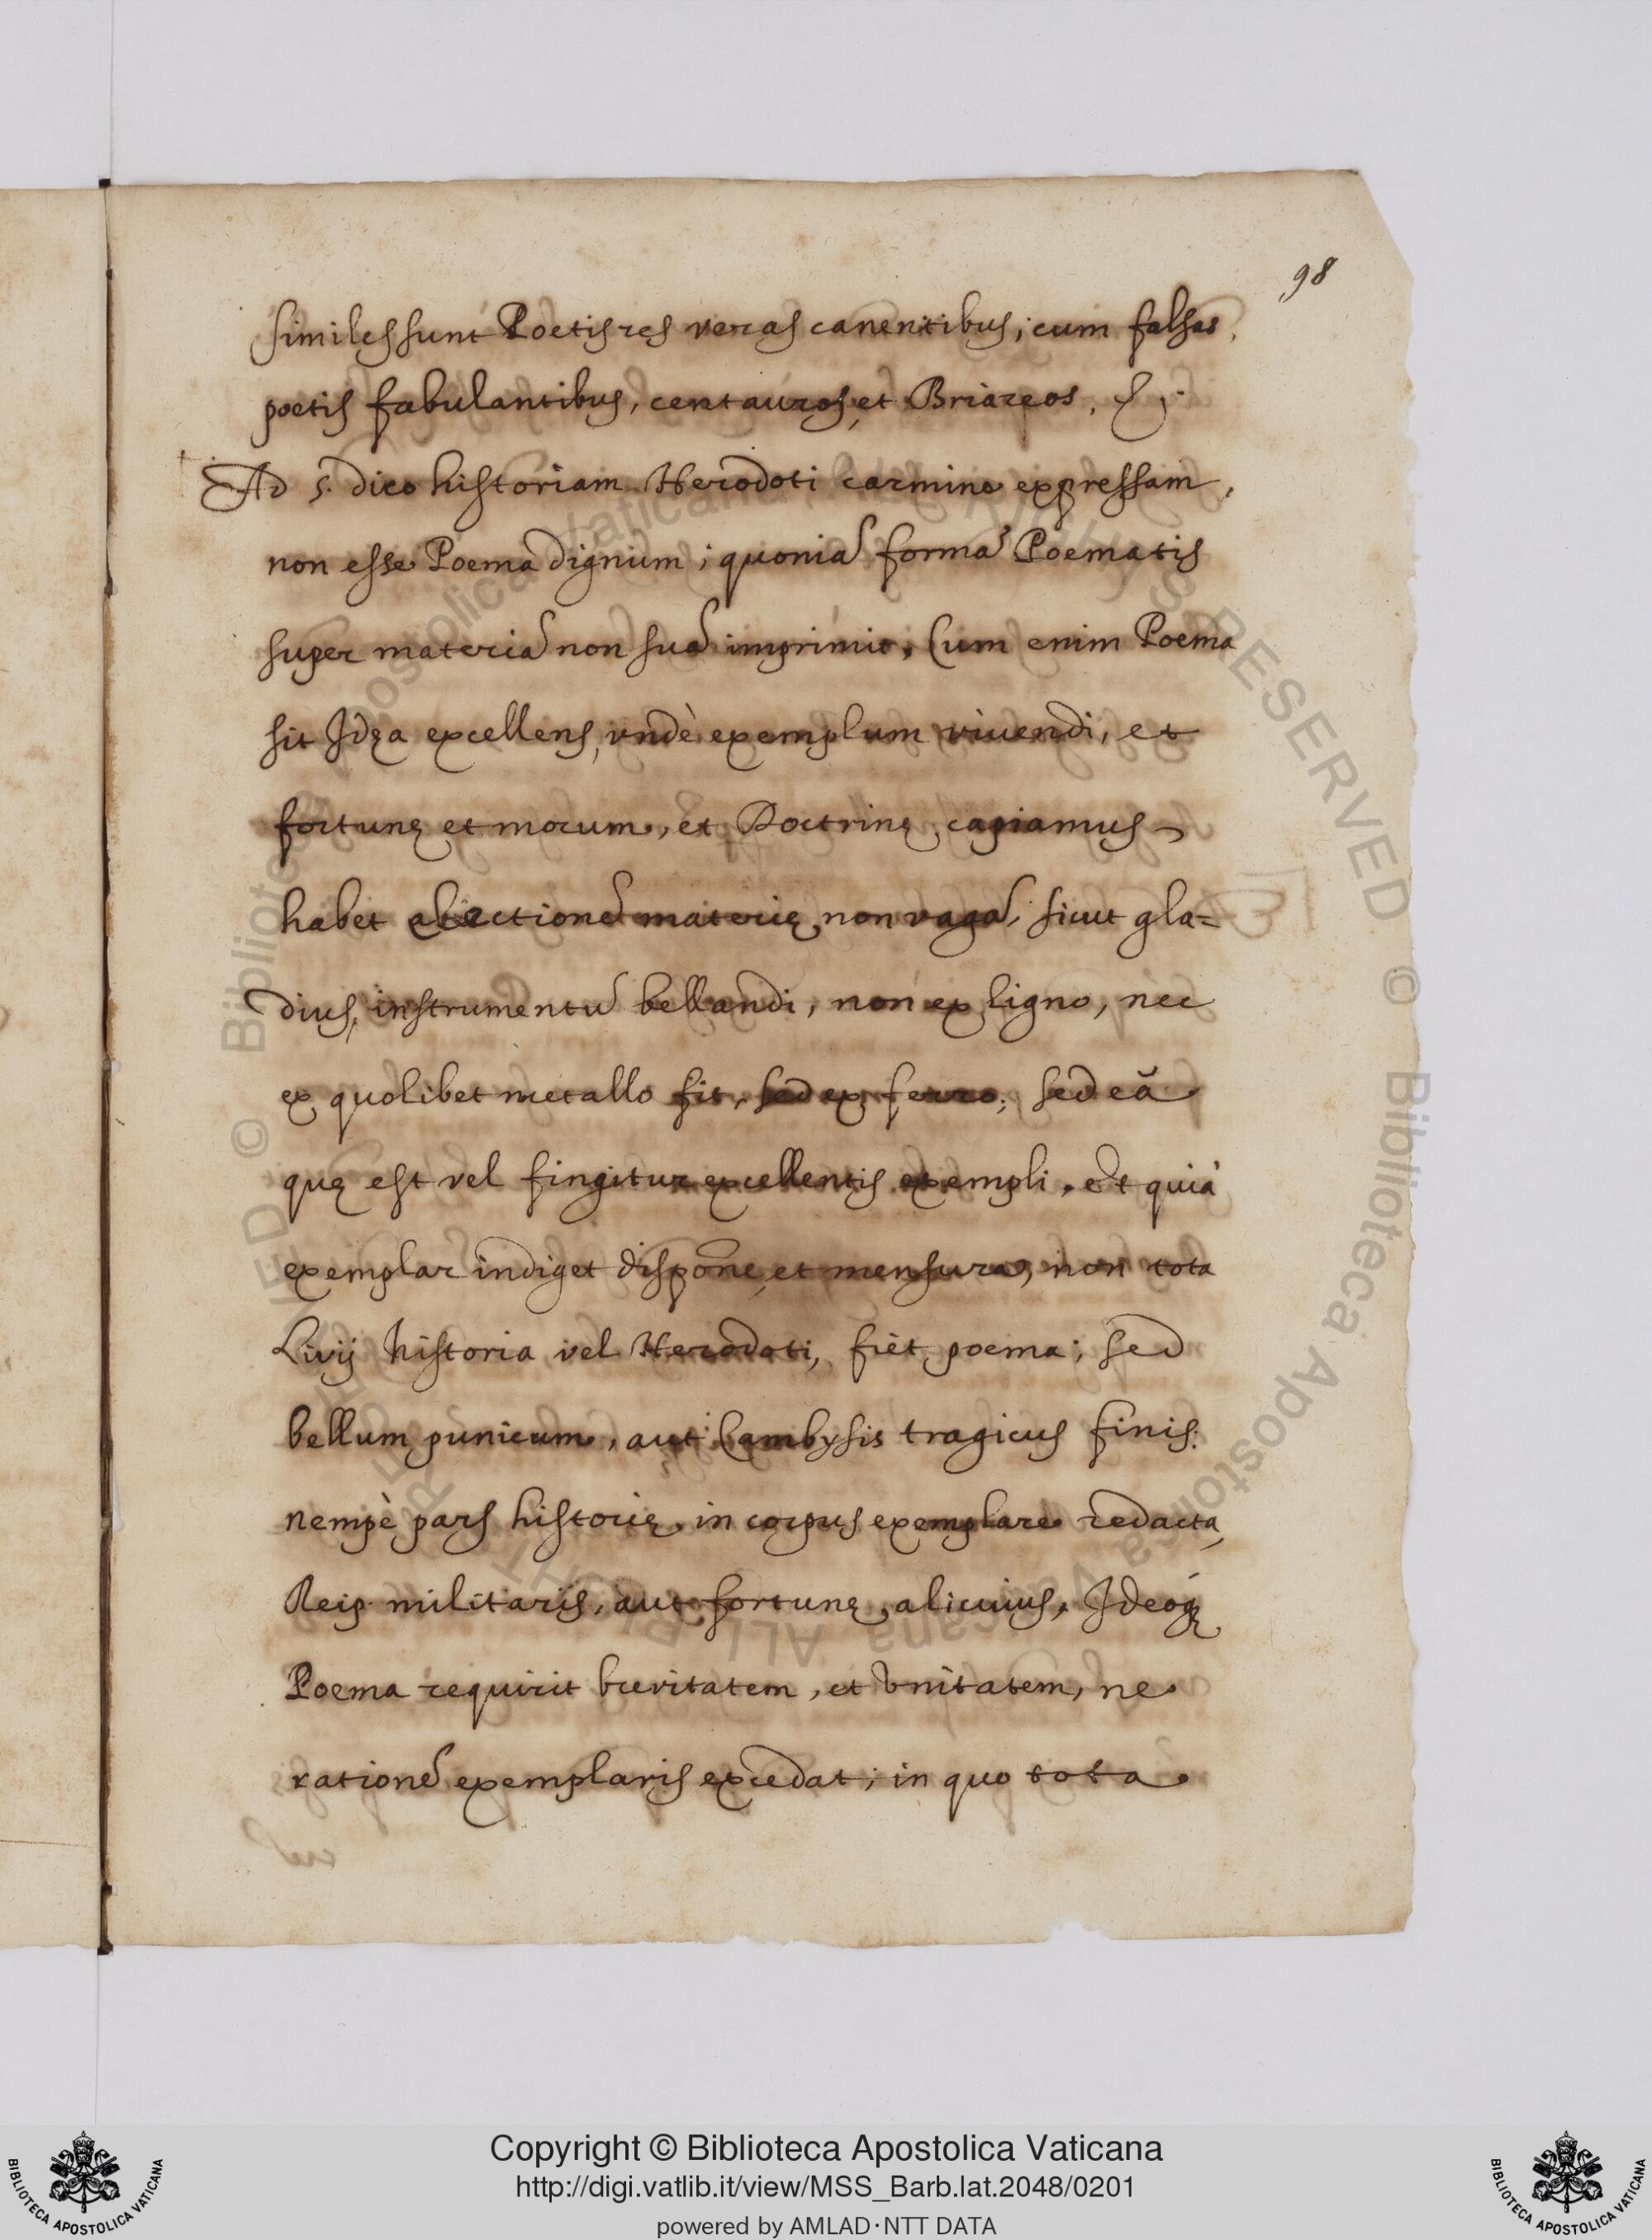 98
similes sunt Poetis res veras canentibus; cum falsas,
poetis fabulantibus, centauros, et Briàreos, &.
Ad 5. dico historiam Herodoti carmine expressam,
non esse Poema dignum; quoniā formā Poematis
super materiā non suā imprimit; Cum enim Poema
sit Idęa excellens, vndè exemplum viuendi, et
fortunę et morum, et Doctrinę capiamus,
habet electionē materię non vagā, sicut gla=
dius, instrumentū bellandi, non ex ligno, nec
ex quolibet metallo fit, sed ex ferro; sed eā
quę est vel fingitur excellentis exempli. Et quià
exemplar indiget disp̄one, et mensura, non tota
Livij historia vel Herodoti, fiet poema; sed
bellum punicum, aut Cambysis tragicus finis:
nempè pars historię in corpus exemplare redacta,
Reip. militaris, aut fortunę alicuius, Ideoq;
Poema requirit breuitatem, et vnitatem, ne
rationē exemplaris excedat; in quo tota
Copyright © Biblioteca Apostolica Vaticana
http://digi.vatlib.it/view/MSS_Barb.lat.2048/0201
powered by AMLAD·NTT DATA
BIBLIOTECA APOSTOLICA VATICANA
BIBLIOTECA APOSTOLICA VATICANA
© Biblioteca Apostolica Vaticana ALL RIGHTS RESERVED
© Biblioteca Apostolica Vaticana ALL RIGHTS RESERVED